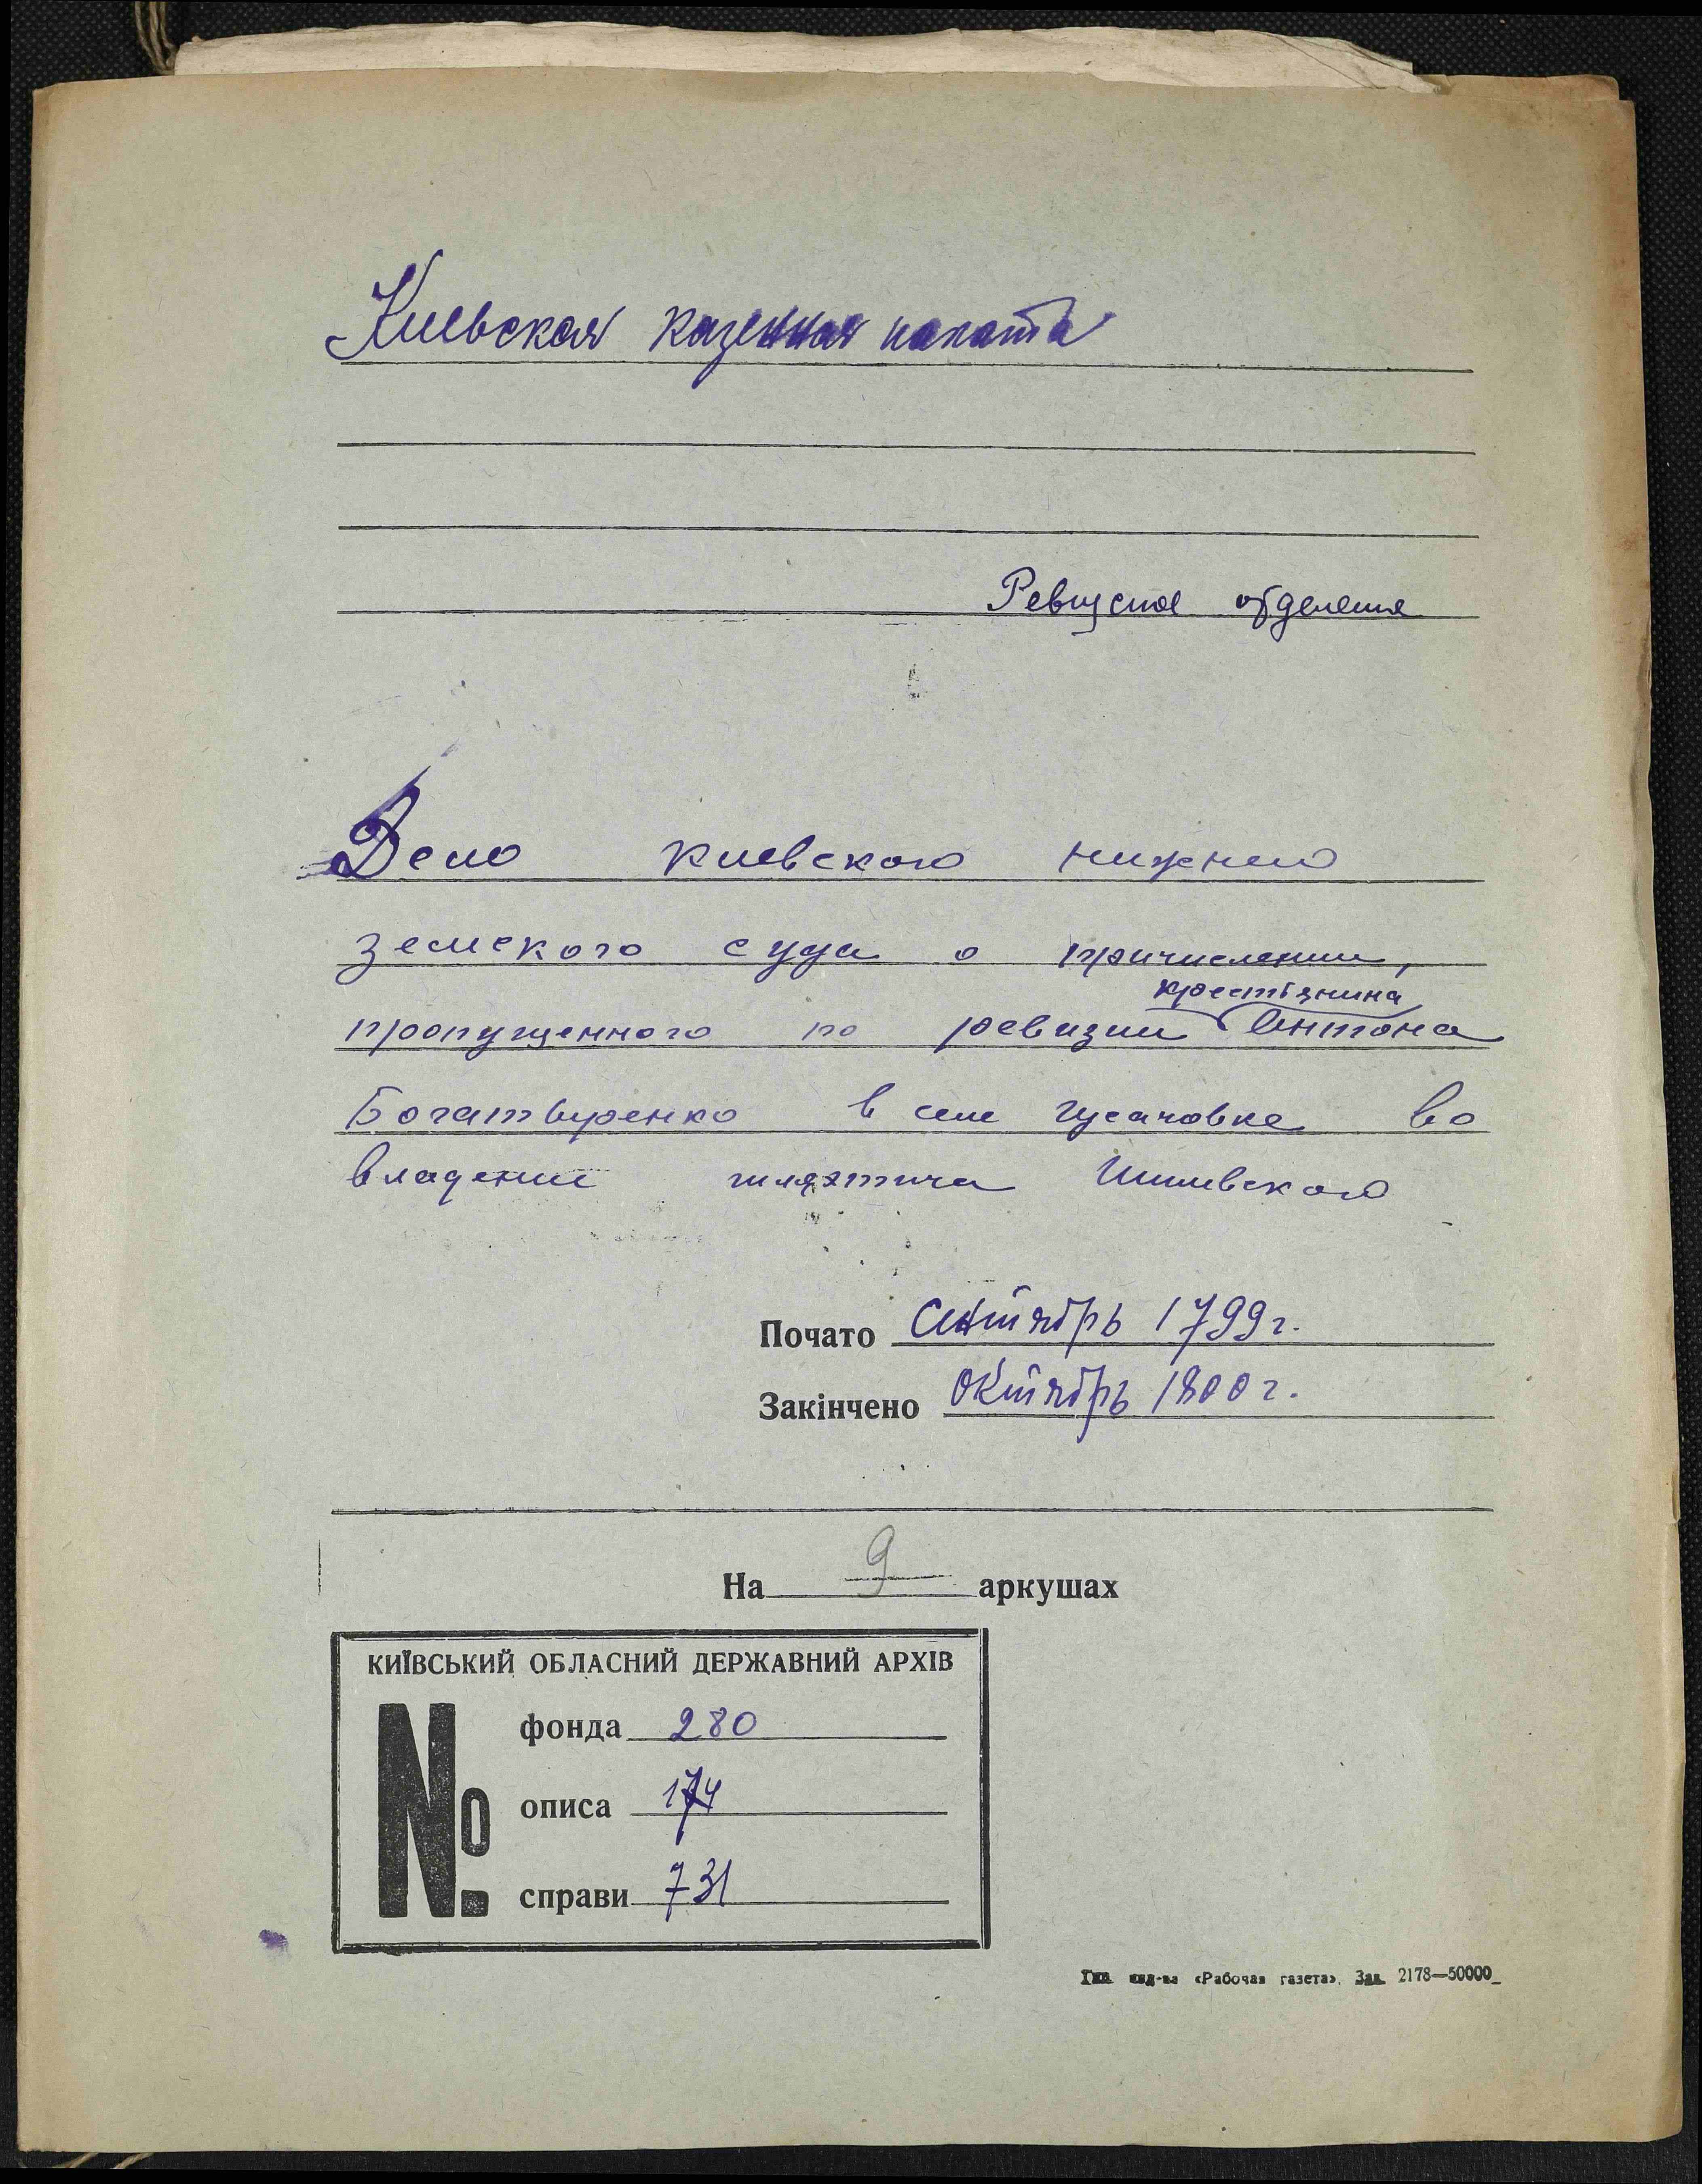 Киевская казенная палата
Ревизское отделение
Дело киевского нижнего
земского суда о причислении,
крестьянина
пропущенного по ревизии Антона
Богатыренко в селе Гусачовке во
владение шляхтича Шишевского
Почато Сентябрь 1799 г.
Закінчено Октябрь 1800 г.
На 9 аркушах
КИЇВСЬКИЙ ОБЛАСНИЙ ДЕРЖАВНИЙ АРХІВ
№
фонда 280
описа 174
справи 731
Тип. изд-ва «Рабочая газета». Зак. 2178—50000